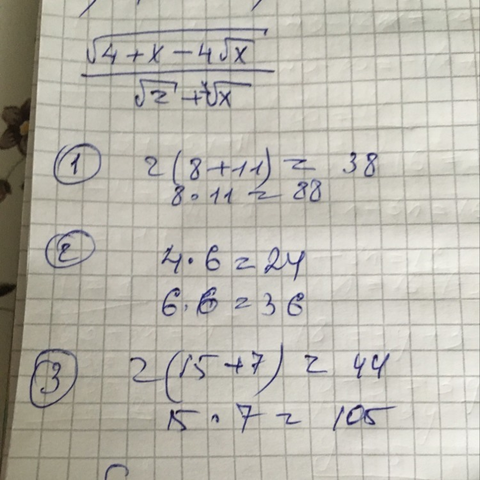 √(4 + x − 4√x)
√2 + ∜x
1 2(8+11) = 38
8 · 11 = 88
2 4 · 6 = 24
6 · 6 = 36
3 2(15+7) = 44
15 · 7 = 105